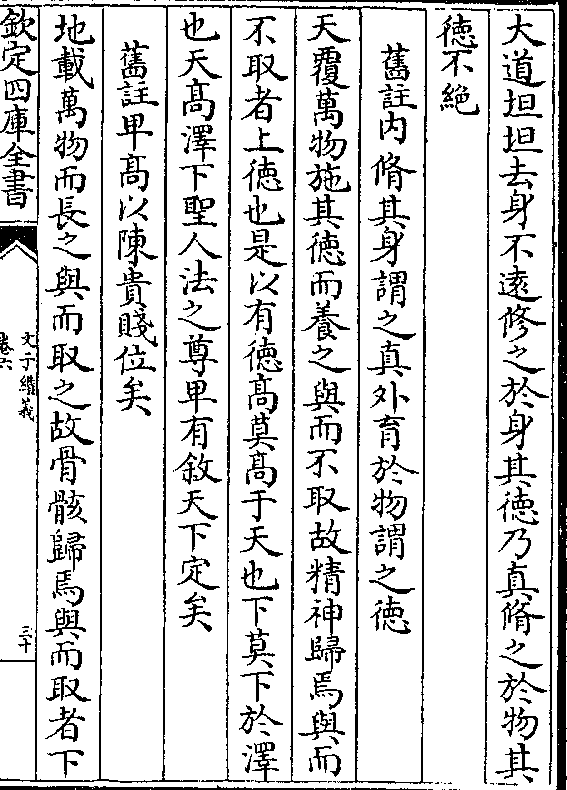 大道坦坦去身不遠修之於身其徳乃真脩之於物其
徳不絶
舊註内脩其身謂之真外育於物謂之徳
天覆萬物施其徳而養之與而不取故精神歸焉與而
不取者上徳也是以有徳髙莫髙于天也下莫下於澤
也天髙澤下聖人法之尊卑有敘天下定矣
舊註卑髙以陳貴賤位矣
地載萬物而長之與而取之故骨骸歸焉與而取者下
欽定四庫全書
文子纘義
卷六
三十